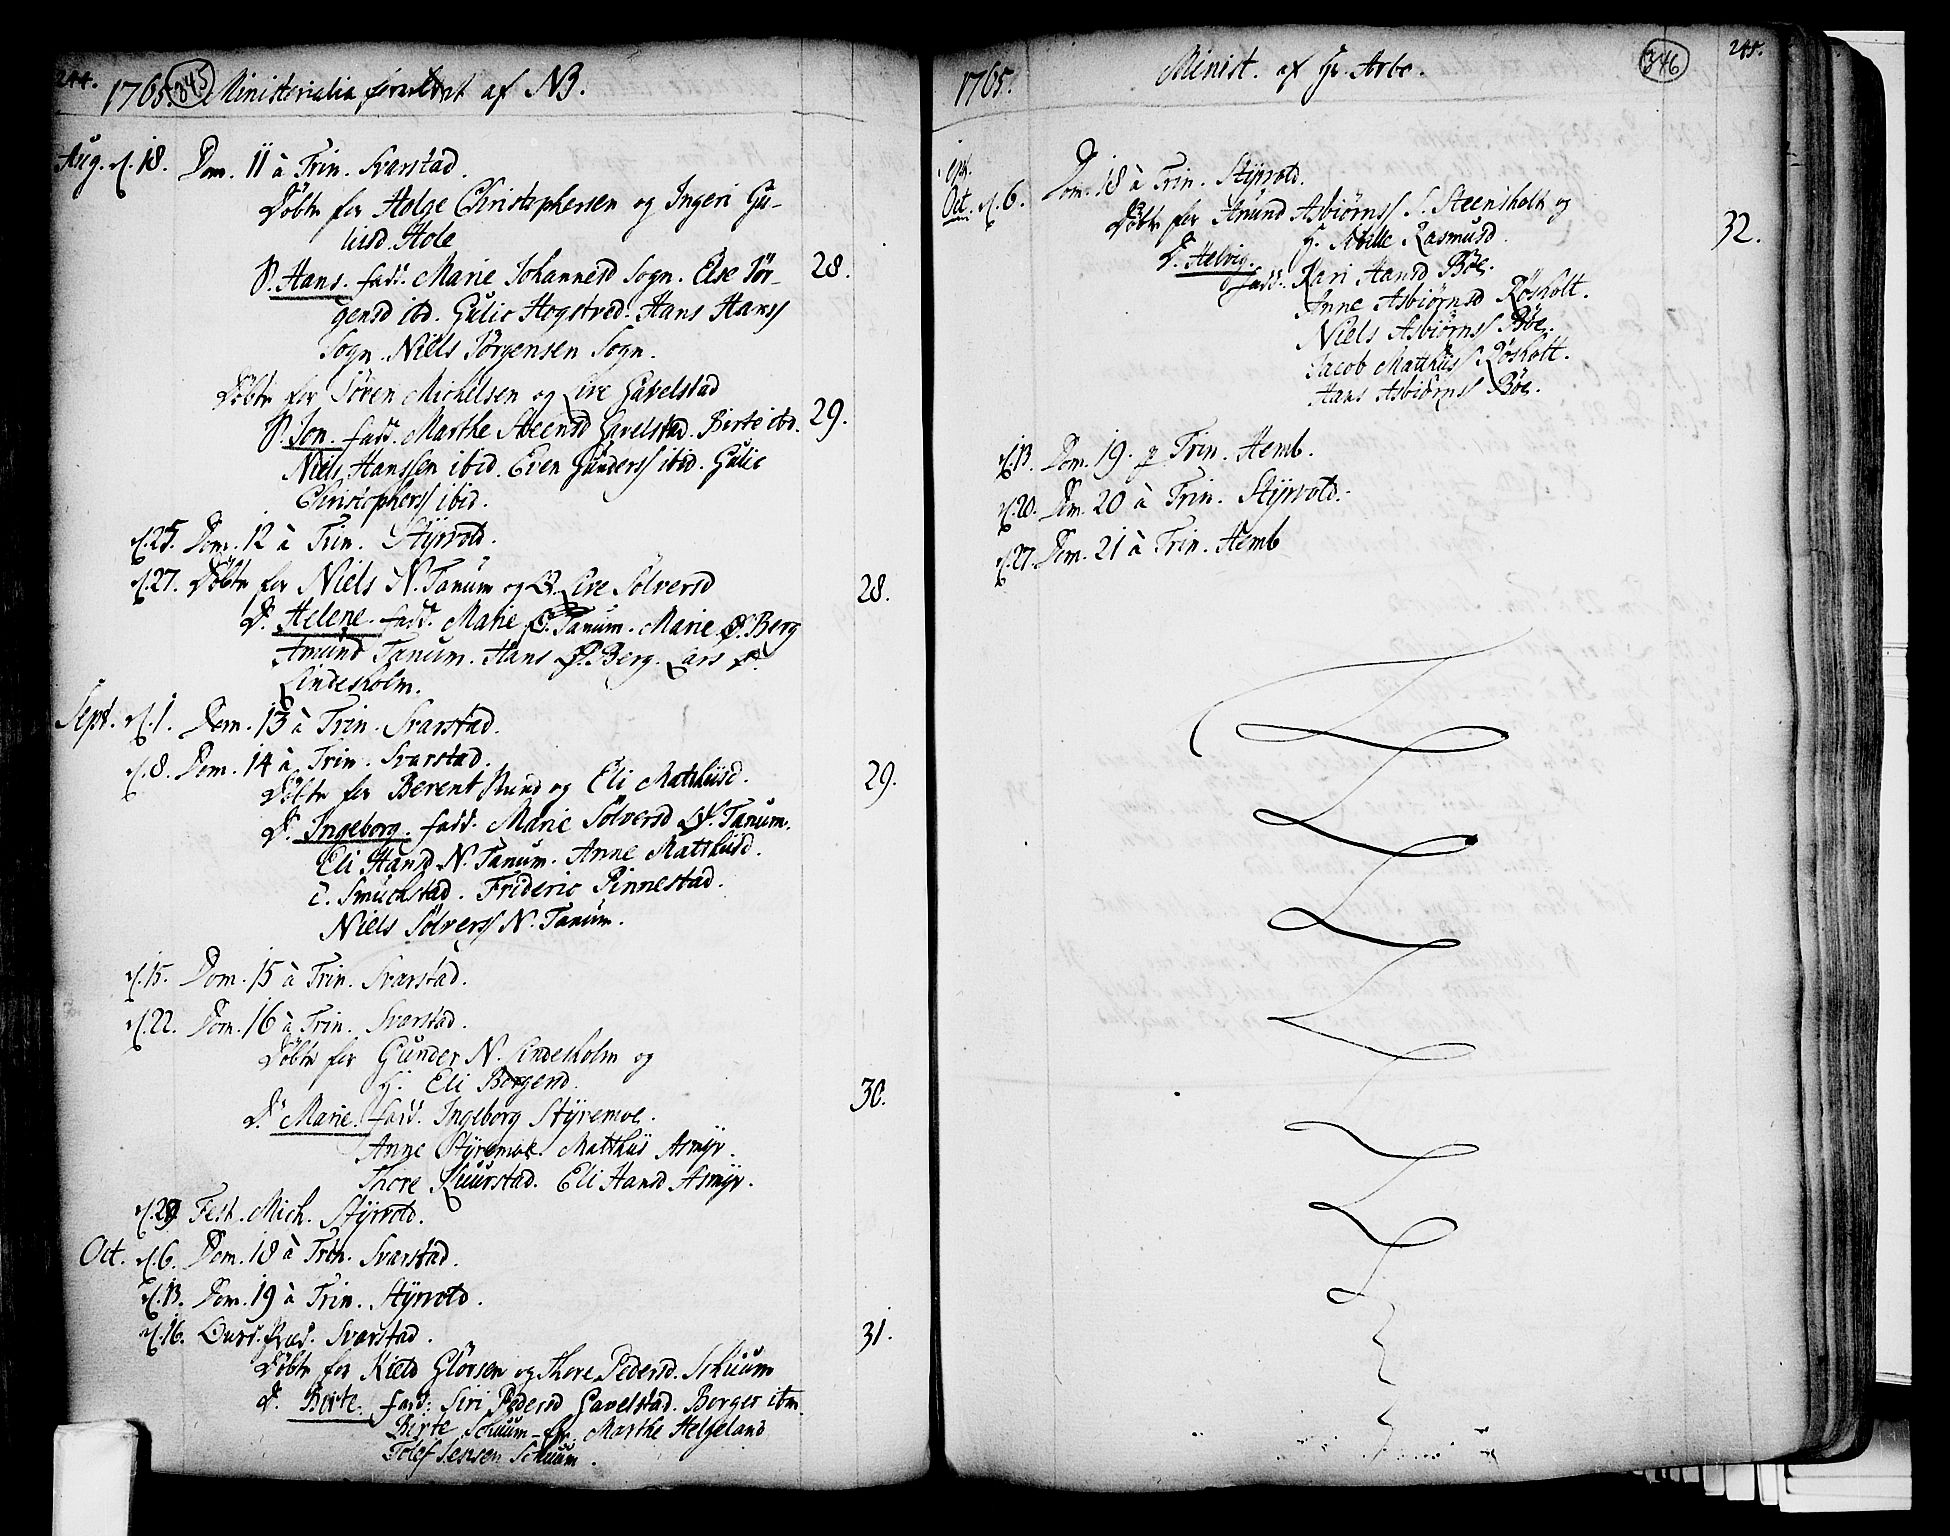 244.
1765. 345 Ministerialia forrettet af NB.
Aug. d. 18. Dom. 11 à Trin. Svarstad.
Döbte for Holge Christophersen og Ingeri Gu-
lisd. Hole
S. Hans. fadd. Marie Johannesd Sogn. Else Jör- 28.
gensd ibd. Gulic Hogstved. Hans Hanss
Sogn. Niels Jörgensen Sogn.
Döbte for Sören Michelsen og Live Gavelstad
S. Jon. fadd. Marthe Steensd Gavelstad. Birte ibd. 29.
Niels Hanssen ibid. Even Gunderss ibid. Gulic
Christopherss ibid.
d. 25. Dom. 12 à Trin. Styrvold.
d. 27. Döbte for Niels N. Tanum og Live Sölversd 28.
D. Helene. fadd. Marie Tanum. Marie Ø. Berg
Amund Tanum. Hans Ø. Berg. Lars
Lindesholm.
Sept. d. 1. Dom. 13 à Trin. Svarstad.
d. 8. Dom. 14 à Trin. Svarstad.
Döbte for Berent Rund og Eli Matthiisd. 29.
D. Ingeborg. fadd. Marie Sölversd N. Tanum.
Eli Hansd N. Tanum. Anne Matthiisd.
Smuchstad. Frideric Pinnestad.
Niels Sölverss N. Tanum.
d. 15. Dom. 15 à Trin. Svarstad.
d. 22. Dom. 16 à Trin. Svarstad.
Döbte for Gunder N. Lindesholm og
H. Eli Borgersd. 30.
D. Marie. fadd. Ingeborg Styremoe.
Anne Styremoe. Matthiis Asmyr.
Thore Skuurstad. Eli Hansd Asmyr.
d. 29 Fest. Mich. Styrvold.
Oct. d. 6. Dom. 18 à Trin. Svarstad.
d. 13. Dom. 19 à Trin. Styrvold.
d. 16. Svarstad. 31.
Döbte for Kield Glövsen og Thore Pedersd. Skuum
D. Birte. fadd: Siri Pedersd Gavelstad. Borger ibm.
Birte Skuum. Marthe Helgeland
Tolef Jensen Skuum.
1765. Minist. af Hr. Arbo. 346 245.
Oct. d. 6. Dom. 18 à Trin. Styrvold.
Döbte for Amund Asbiörnss S. Steensholt og
H. Abille Rasmusd. 32.
D. Helvig.
fadd. Kari Hansd Böe.
Anne Asbiörnsd Rösholt.
Niels Asbiörnss Böe.
Jacob Matthiiss Rösholt.
Hans Asbiörnss Böe.
d. 13. Dom. 19. p Trin. Hemb.
d. 20. Dom. 20 à Trin. Styrvold.
d. 27. Dom. 21 à Trin. Hemb